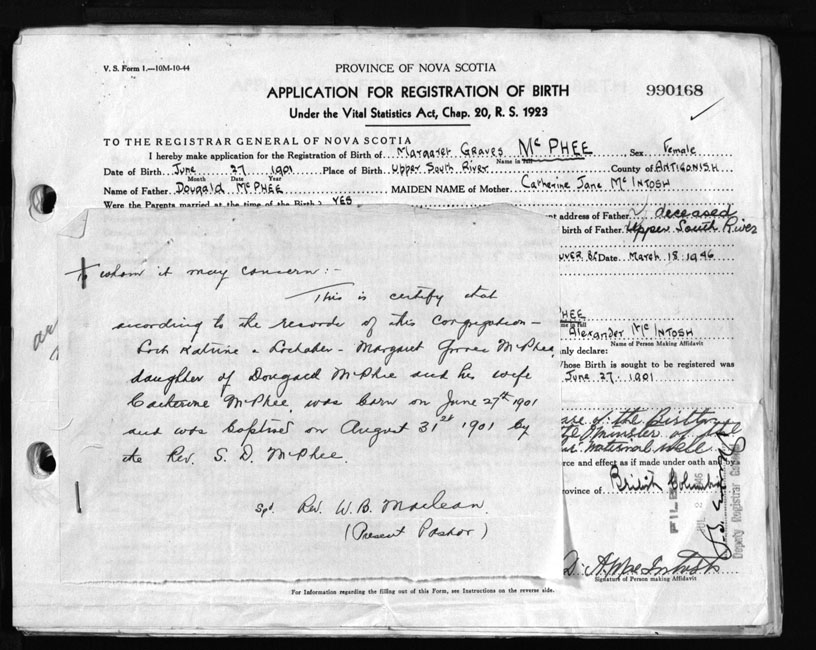 V. S. Form 1.—10M-10-44
PROVINCE OF NOVA SCOTIA
APPLICATION FOR REGISTRATION OF BIRTH
990168
Under the Vital Statistics Act, Chap. 20, R. S. 1923
TO THE REGISTRAR GENERAL OF NOVA SCOTIA
I hereby make application for the Registration of Birth of Margaret Graves Mc PHEE, Sex Female
Name in full
Date of Birth June 27 1901 Place of Birth Upper South River County of ANTIGONISH
Month Date Year
Name of Father Dougald McPHEE MAIDEN NAME of Mother Catherine Jane Mc INTOSH
Were the Parents married at the time of the Birth? YES
nt address of Father deceased
birth of Father Upper South River
UVER BC Date March 18 1946
To whom it may concern:-
This is certify that
according to the records of this Congregation -
Loch Katrine & Lochaber - Margaret Graves McPhee,
daughter of Dougald McPhee and his wife
Catherine McPhee, was born on June 27th 1901
and was baptised on August 31st 1901 by
the Rev. S. D. McPhee.
Sgd. Rev. W. B. Maclean.
(Present Pastor)
PHEE
Alexander Mc INTOSH
Name of Person Making Affidavit
nly declare:
hose Birth is sought to be registered was
June 27 1901
of the Birth
the Minister of
rce and effect as if made under oath and by
rovince of British Columbia
FILED
Deputy Registrar General
D. A. MacIntosh
Signature of Person making Affidavit
For Information regarding the filling out of this Form, see Instructions on the reverse side.